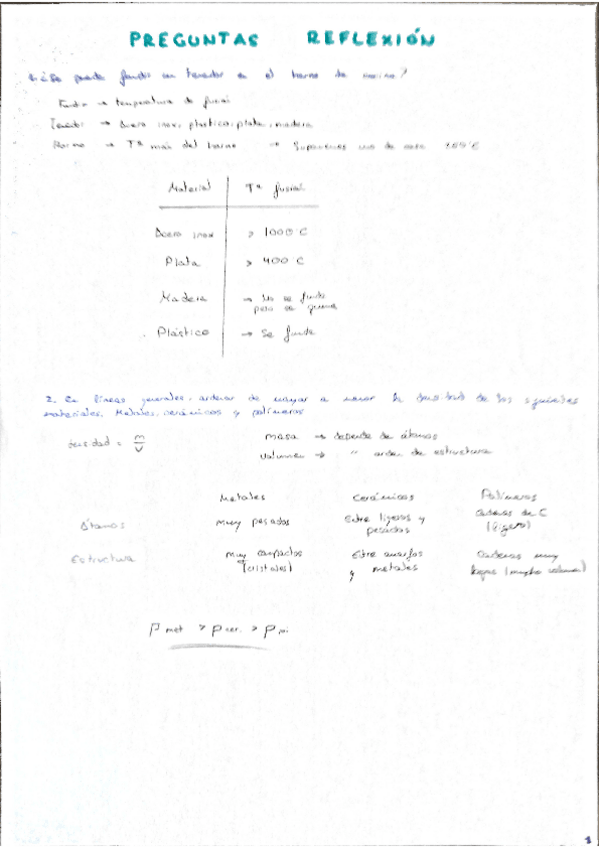 PREGUNTAS REFLEXIÓN
1. ¿Se puede fundir un tenedor en el horno de cocina?
Fundir → temperatura de fusión
Tenedor → Acero inox, plástico, plata, madera
Horno → Tª max del horno → Suponemos uno de casa
Material Tª fusión
Acero inox > 1000 C
Plata > 400 C
Madera → No se funde
pero se quema
Plástico → Se funde
2. En líneas generales, ordenar de mayor a menor la densidad de los siguientes
materiales. Metales, cerámicos y polímeros
densidad = m/V
masa → depende de átomos
volumen → " orden de estructura
Metales Cerámicos Polímeros
Átomos muy pesados Entre ligeros y pesados cadenas de C (ligero)
Estructura muy compactos (cristales) Entre amorfos y metales Cadenas muy largas (mucho volumen)
ρ met > ρ cer. > ρ
1